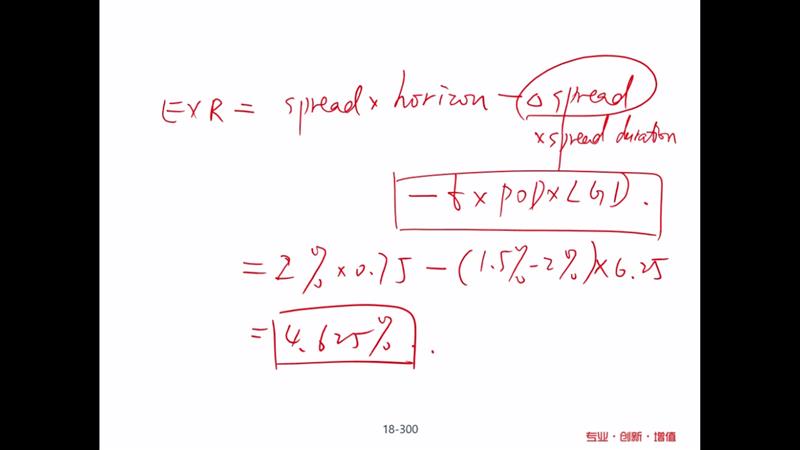 EXR = spread × horizon - (Δ spread
× spread duration
- t × POD × LGD.
= 2% × 0.75 - (1.5% - 2%) × 6.25
= 4.625%.
18-300
专业·创新·增值